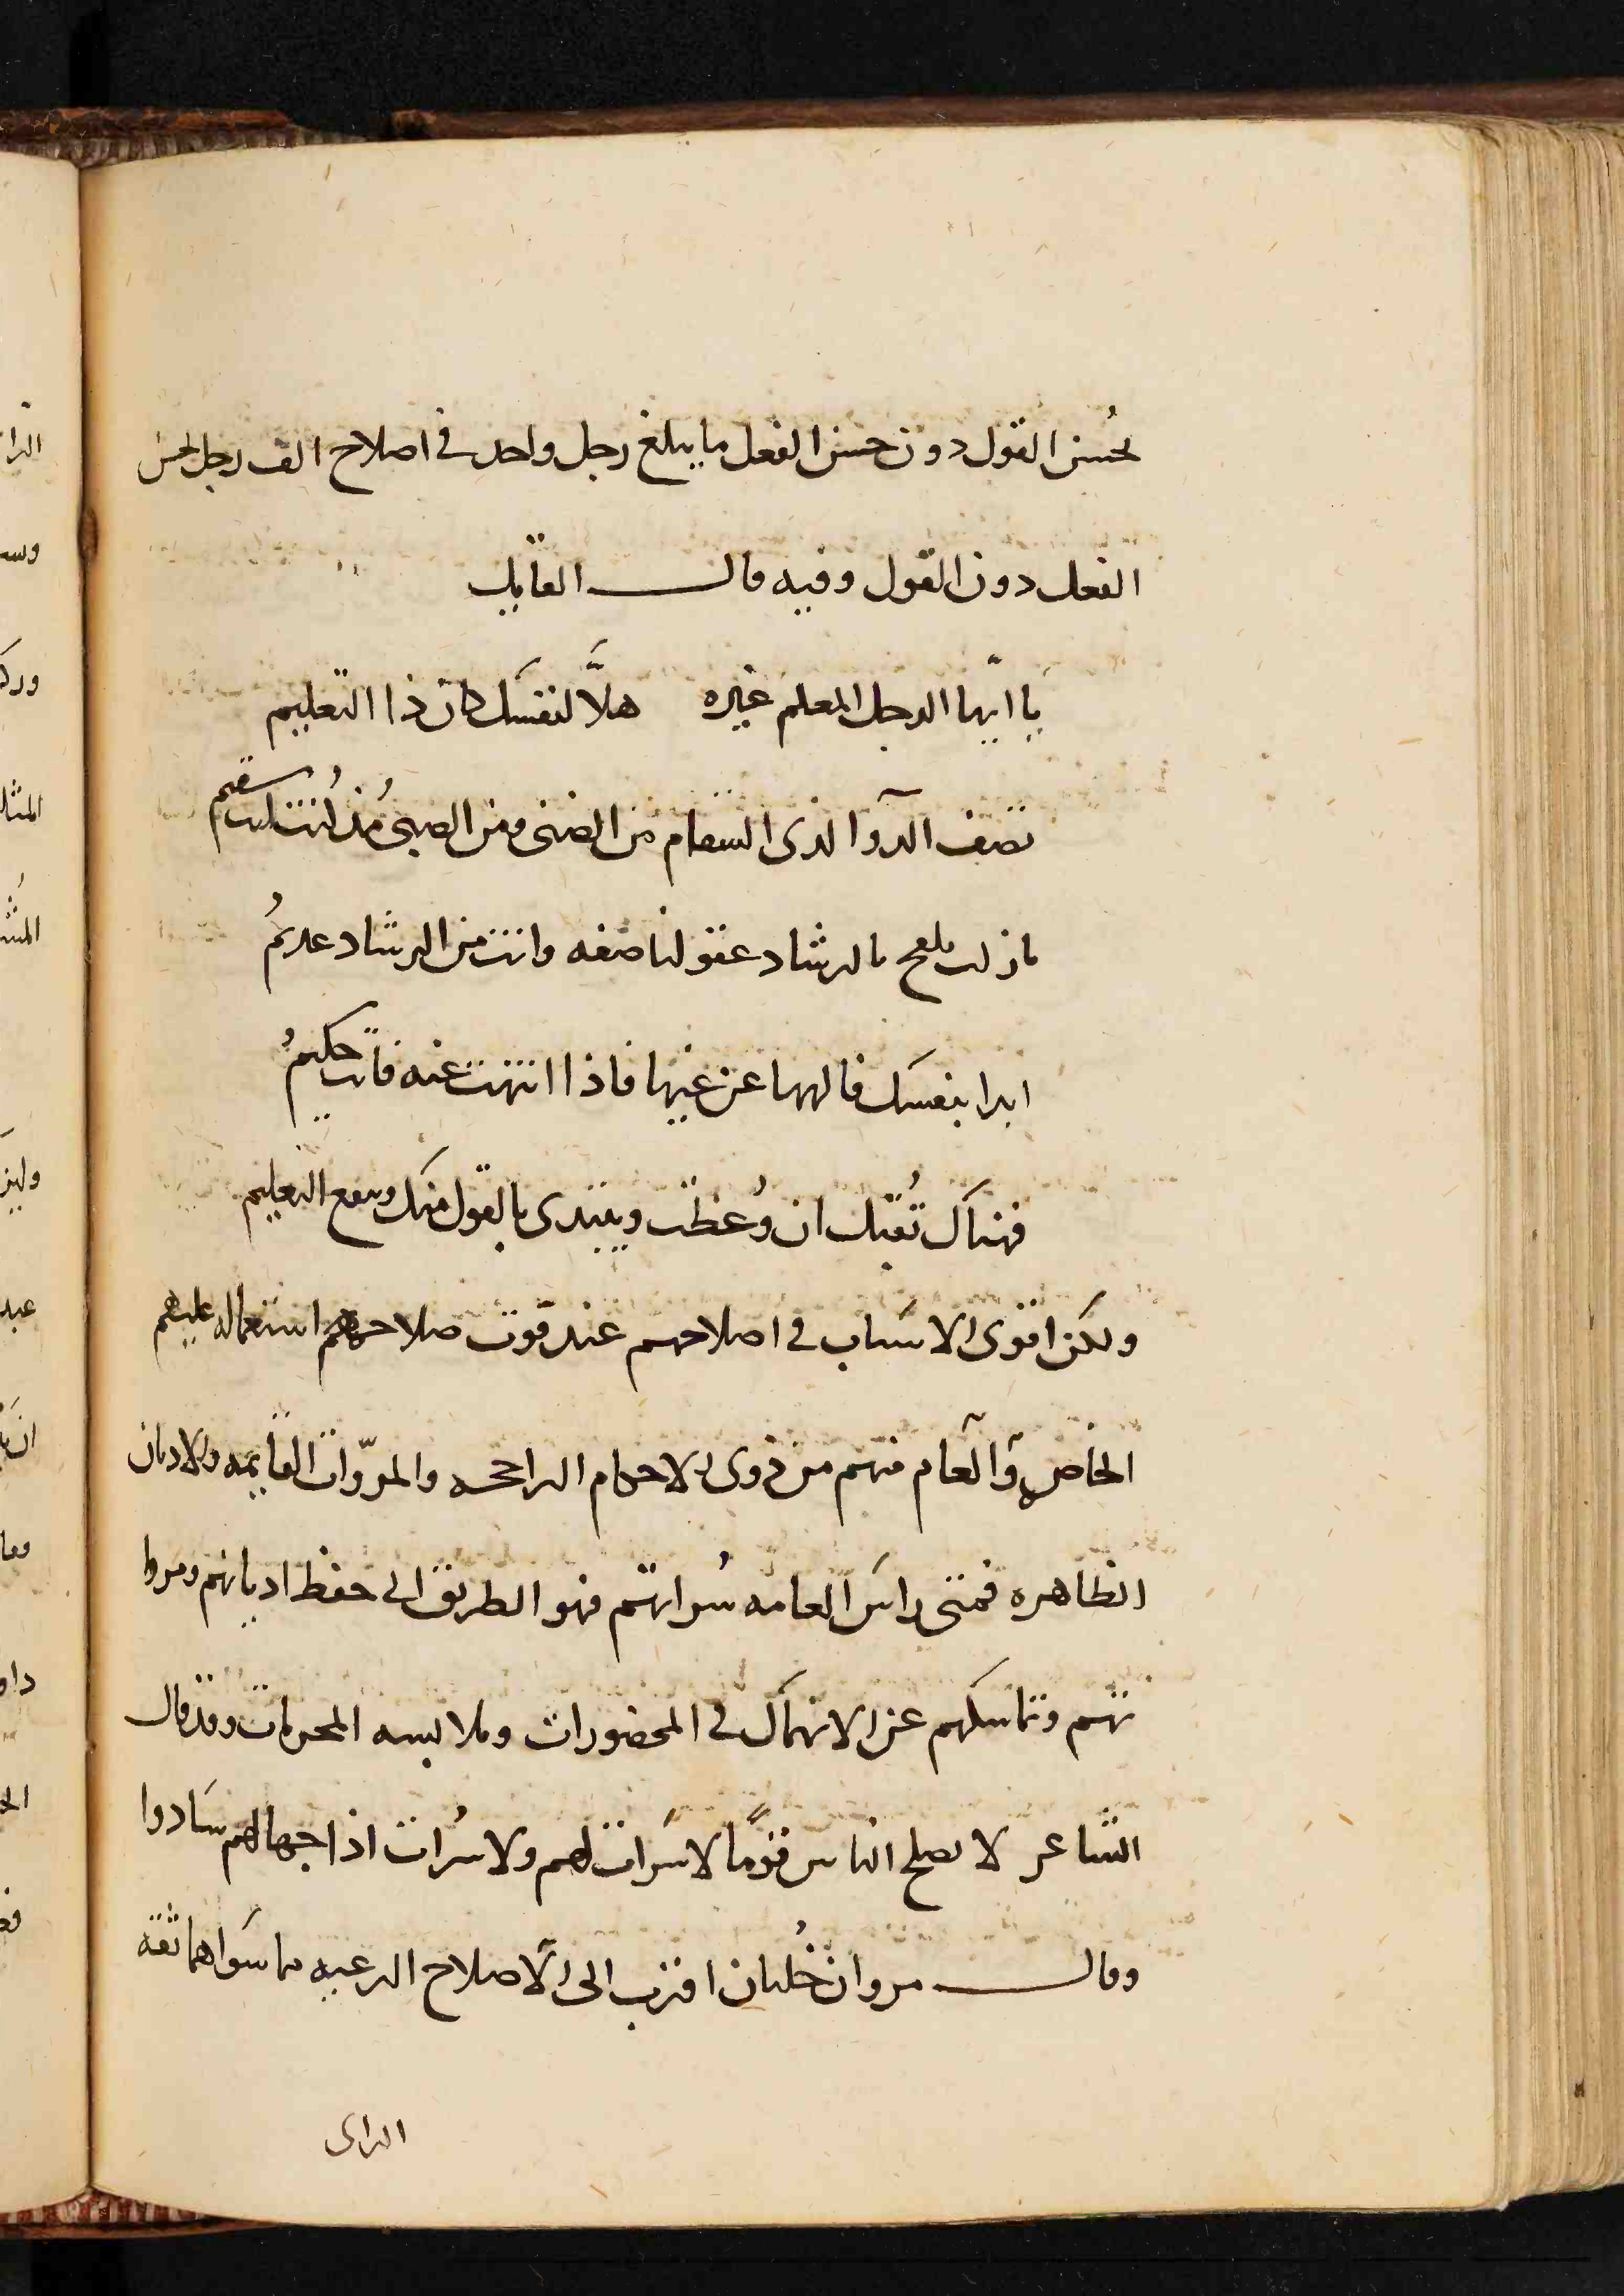 بحُسن القول دون حسن الفعل ما يبلغ رجل واحد في اصلاح الف رجل بحسن
الفعل دون القول وفيه قال القايل
يا ايّها الرجل المعلم غيره هلّا لنفسك كان ذا التعليم
تصف الدوا لذى السقام من الضنى ومن الصبى مُذ كُنت انت سقيم
ما زلت تلقح بالرشاد عقولنا صفه وانت من الرشاد عديمُ
ابدا بنفسك فانهها عن غيها فاذا انتهت عنه فانت حكيمُ
فهناك تُقبل ان وُعظت ويقتدى بالقول منك وينفع التعليم
ولكن اقوى الاسباب في اصلاحهم عند فوت صلاحهم استعماله عليهم
الخاص والعام منهم من ذوى الاحلام الراجحه والمروّات القايمه والاديان
الظاهره فمتى راس العامه سُراتهم فهو الطريق الى حفظ اديانهم ومروا
تهم وتماسكهم عن الانهماك في المحضورات وملابسه المحرمات وقد قال
الشاعر لا يصلح الناس قومًا لا سرات لهم ولا سُرات اذا جهالهم سادوا
وقال مروان خُلتان اقرب الى الاصلاح الرعيه مما سواهما ثقه
الراى